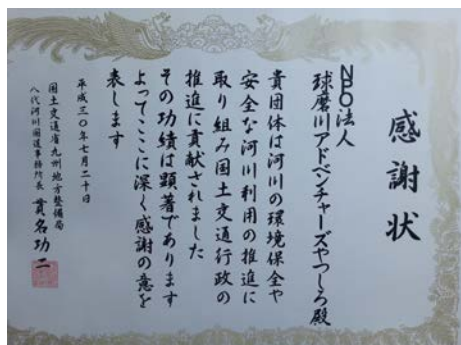 感謝状
NPO法人
球磨川アドベンチャーズやつしろ殿
貴団体は河川の環境保全や
安全な河川利用の推進に
取り組み国土交通行政の
推進に貢献されました
その功績は顕著であります
よってここに深く感謝の意を
表します
平成三〇年七月二十日
国土交通省九州地方整備局
八代河川国道事務所長 貫名功二